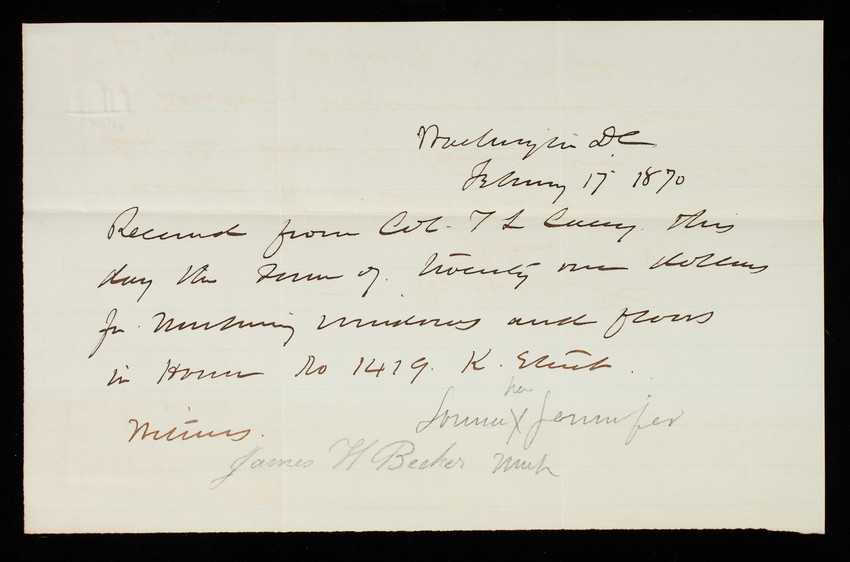 Washington DC
February 17 1870
Received from Col. T L Casey. this
day the sum of. twenty one dollars
for washing windows and floors
in House No 1419. K. Street.
her
X Jennifer
Witness.
James H Becker mark